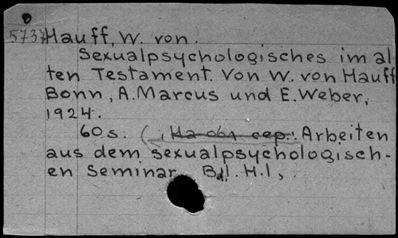 5737 Hauff, W. von.
Sexualpsychologisches im al-
ten Testament. Von W. von Hauff
Bonn, A. Marcus und E. Weber,
1924.
60 s. (, На обл сер.: Arbeiten
aus dem sexualpsychologisch-
en Seminar Bd. H.1,